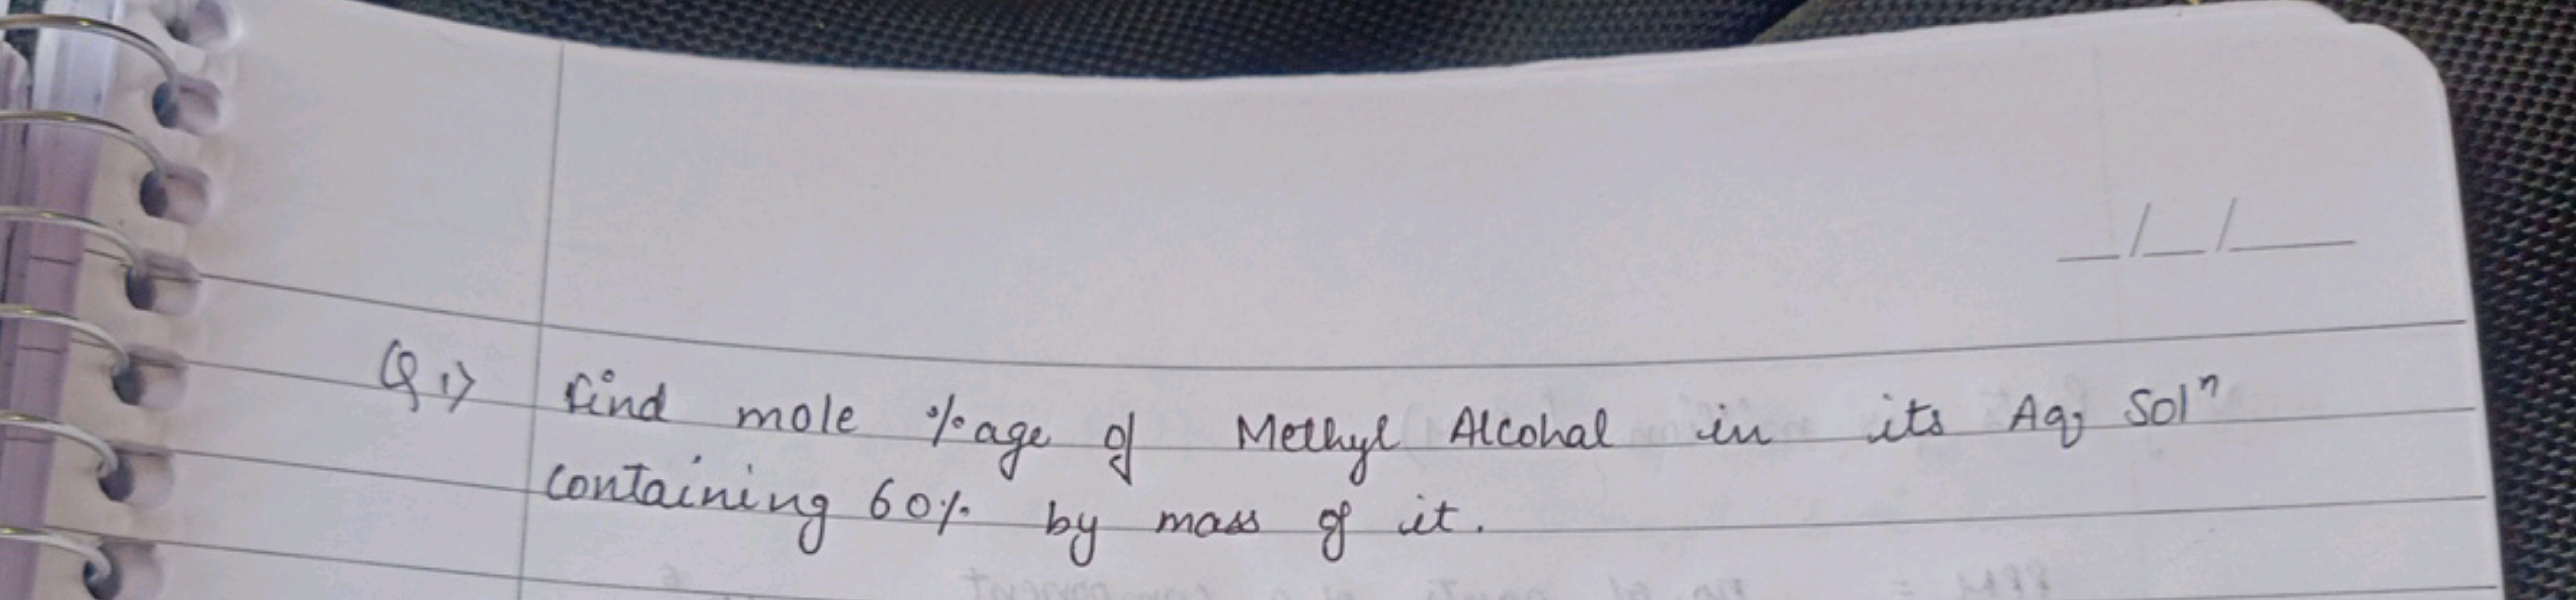 __/__/____
Q1> find mole %age of Methyl Alcohal in its Aq Solⁿ
containing 60% by mass of it.